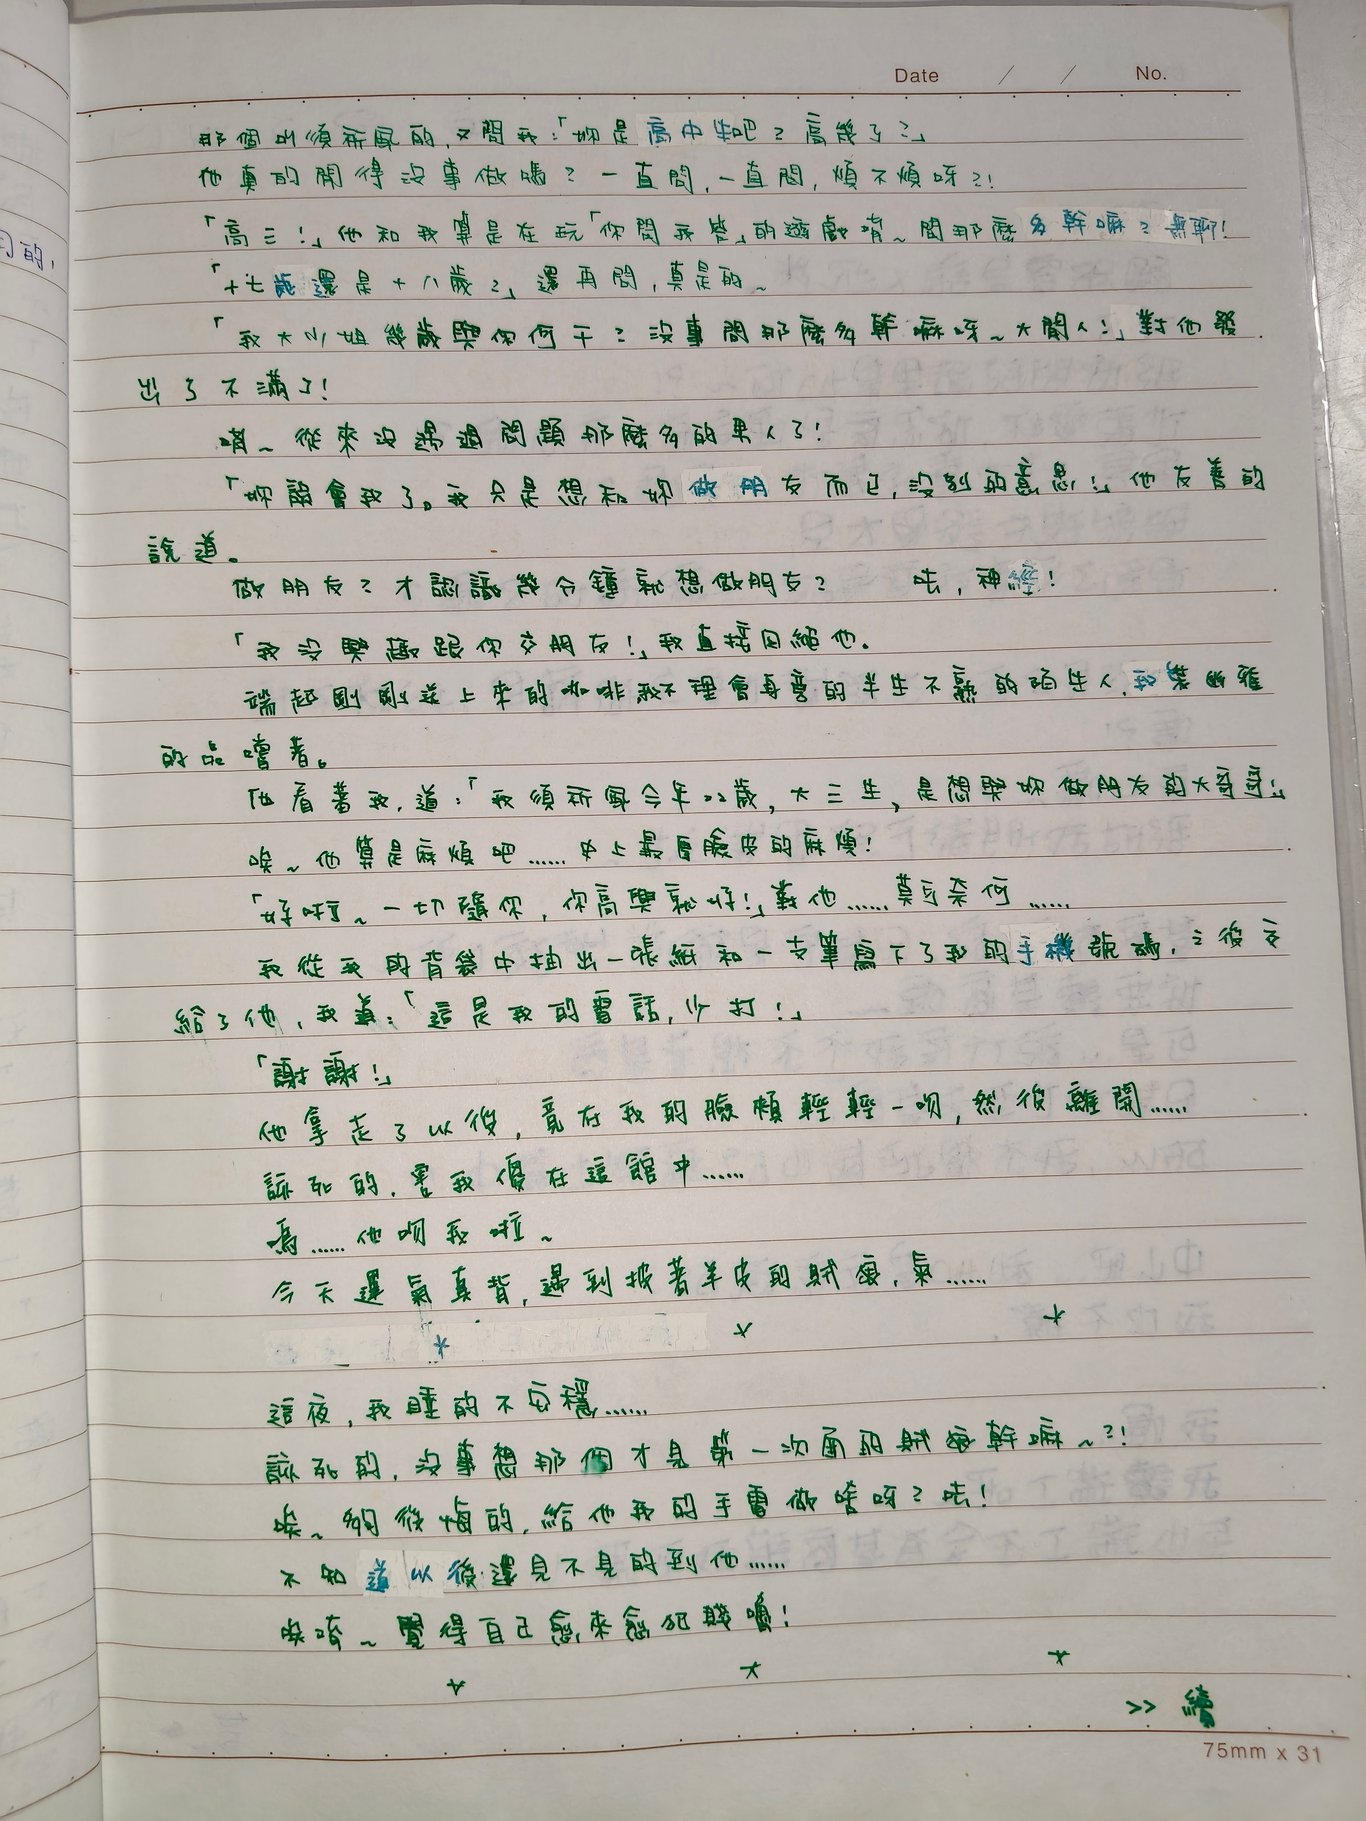 Date / / No.
那個叫須祈風的,又問我:「妳是高中生吧?高幾了?」
他真的閒得沒事做嗎?一直問,一直問,煩不煩呀?!
「高三!」他和我算是在玩「你問我答」的遊戲唷~問那麼多幹嘛?無聊!
「十七歲還是十八歲?」還再問,真是的~
「我大小姐幾歲與你何干?沒事問那麼多幹嘛呀~大閒人!」對他發
出了不滿了!
唷~從來沒遇過問題那麼多的男人了!
「妳誤會我了。我只是想和妳做朋友而已,沒別的意思!」他友善的
說道。
做朋友?才認識幾分鐘就想做朋友? 呿,神經!
「我沒興趣跟你交朋友!」我直接回絕他。
端起剛剛送上來的咖啡我不理會身旁的半生不熟的陌生人,我裝幽雅
的品嚐著。
他看著我,道:「我須祈風今年22歲,大三生,是想與妳做朋友的大哥哥!」
唉~他算是麻煩吧……史上最冒臉皮的麻煩!
「好啦~一切隨你,你高興就好!」對他……莫可奈何……
我從我的背袋中抽出一張紙和一支筆寫下了我的手機號碼,之後交
給了他,我道:「這是我的電話,少打!」
「謝謝!」
他拿走了以後,竟在我的臉頰輕輕一吻,然後離開……
該死的,害我傻在這館中……
嗚……他吻我啦~
今天運氣真背,遇到披著羊皮的賊狼,氣……
* * *
這夜,我睡的不安穩……
該死的,沒事想那個才見第一次面的賊狼幹嘛~?!
唉~夠後悔的,給他我的手電做啥呀?呿!
不知道以後還見不見的到他……
唉唷~覺得自己愈來愈犯賤嚕!
* * *
>> 續
75mm x 31